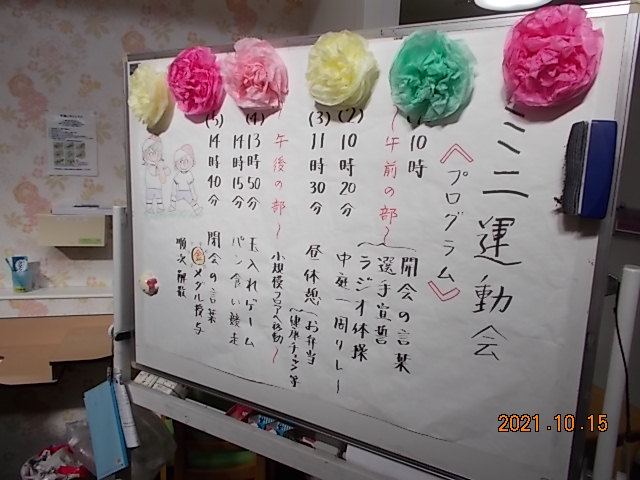 ミニ運動会
《プログラム》
10時 開会の言葉
〜午前の部〜
選手宣誓
ラジオ体操
(2) 10時20分 中庭一周リレー
(3) 11時30分 昼休憩(お弁当
健康チェック等
〜午後の部〜 小規模フロアへ移動〜
(4) 13時50分 玉入れゲーム
14時15分 パン食い競走
(5) 14時40分 閉会の言葉
金メダル授与
順次解散
2021.10.15